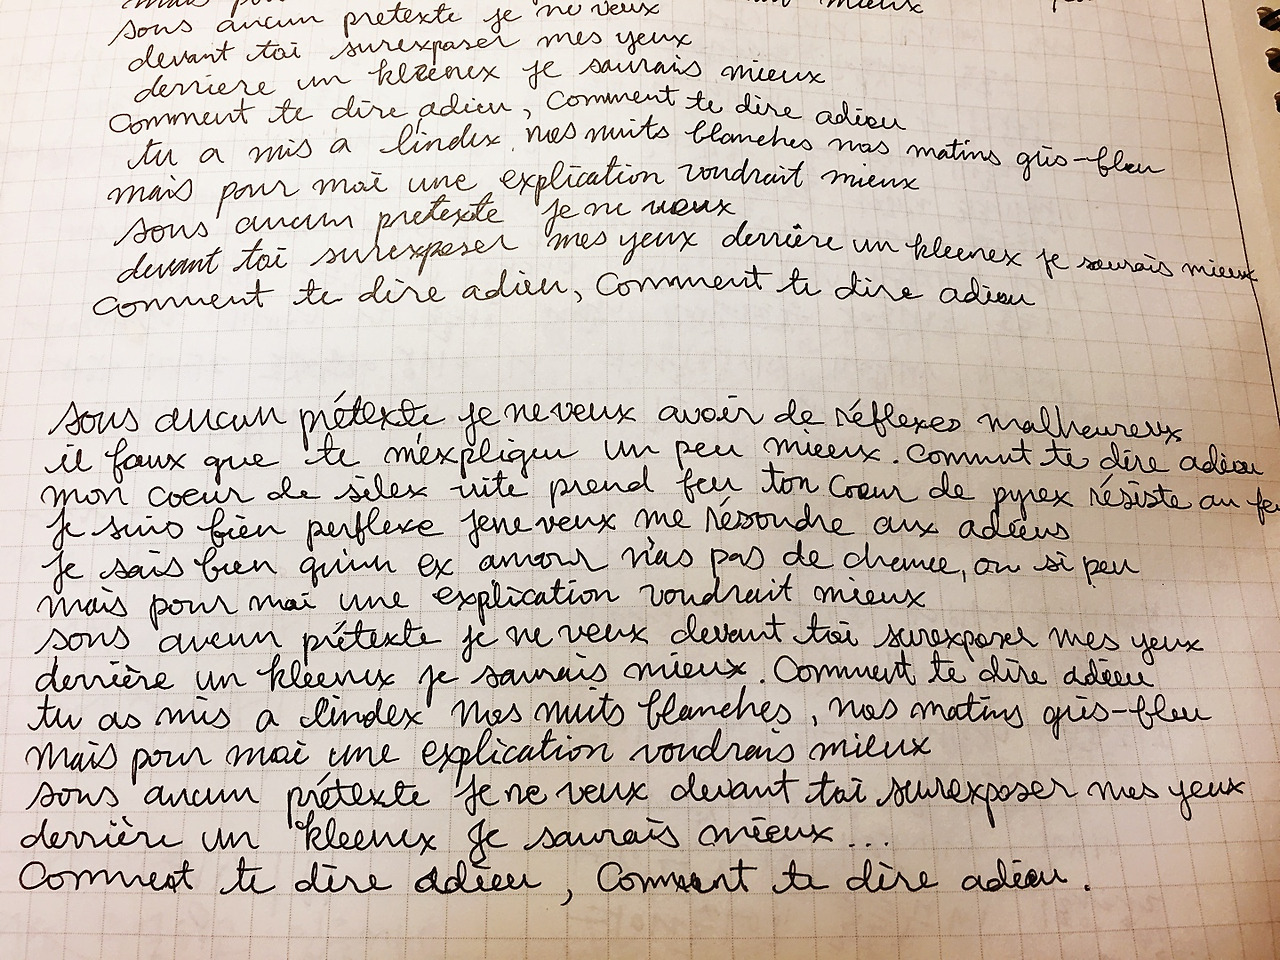 mais pour mieux
sous aucun pretexte je ne veux
devant toi surexposer mes yeux
derriere un kleenex je saurais mieux
Comment te dire adieu, Comment te dire adieu
tu a mis a lindex nos nuits blanches nos matins gris-bleu
mais pour moi une explication voudrait mieux
sous aucun pretexte je ne veux
devant toi surexposer mes yeux derrière un kleenex je saurais mieux
Comment te dire adieu, Comment te dire adieu
sous aucun prétexte je ne veux avoir de réflexes malheureux
il faux que te m'expliquer un peu mieux. Comment te dire adieu
mon coeur de silex vite prend feu ton coeur de pyrex résiste au fe
Je suis bien perplexe je ne veux me résoudre aux adieus
Je sais bien qu'un ex amour n'as pas de chance, ou si peu
mais pour moi une explication voudrait mieux
sous aucun prétexte je ne veux devant toi surexposer mes yeux
derrière un kleenex je saurais mieux. Comment te dire adieu
tu as mis a l'index nos nuits blanches, nos matins gris-bleu
Mais pour moi une explication voudrais mieux
sous aucun prétexte je ne veux devant toi surexposer mes yeux
derrière un kleenex je saurais mieux...
Comment te dire adieu, Comment te dire adieu.